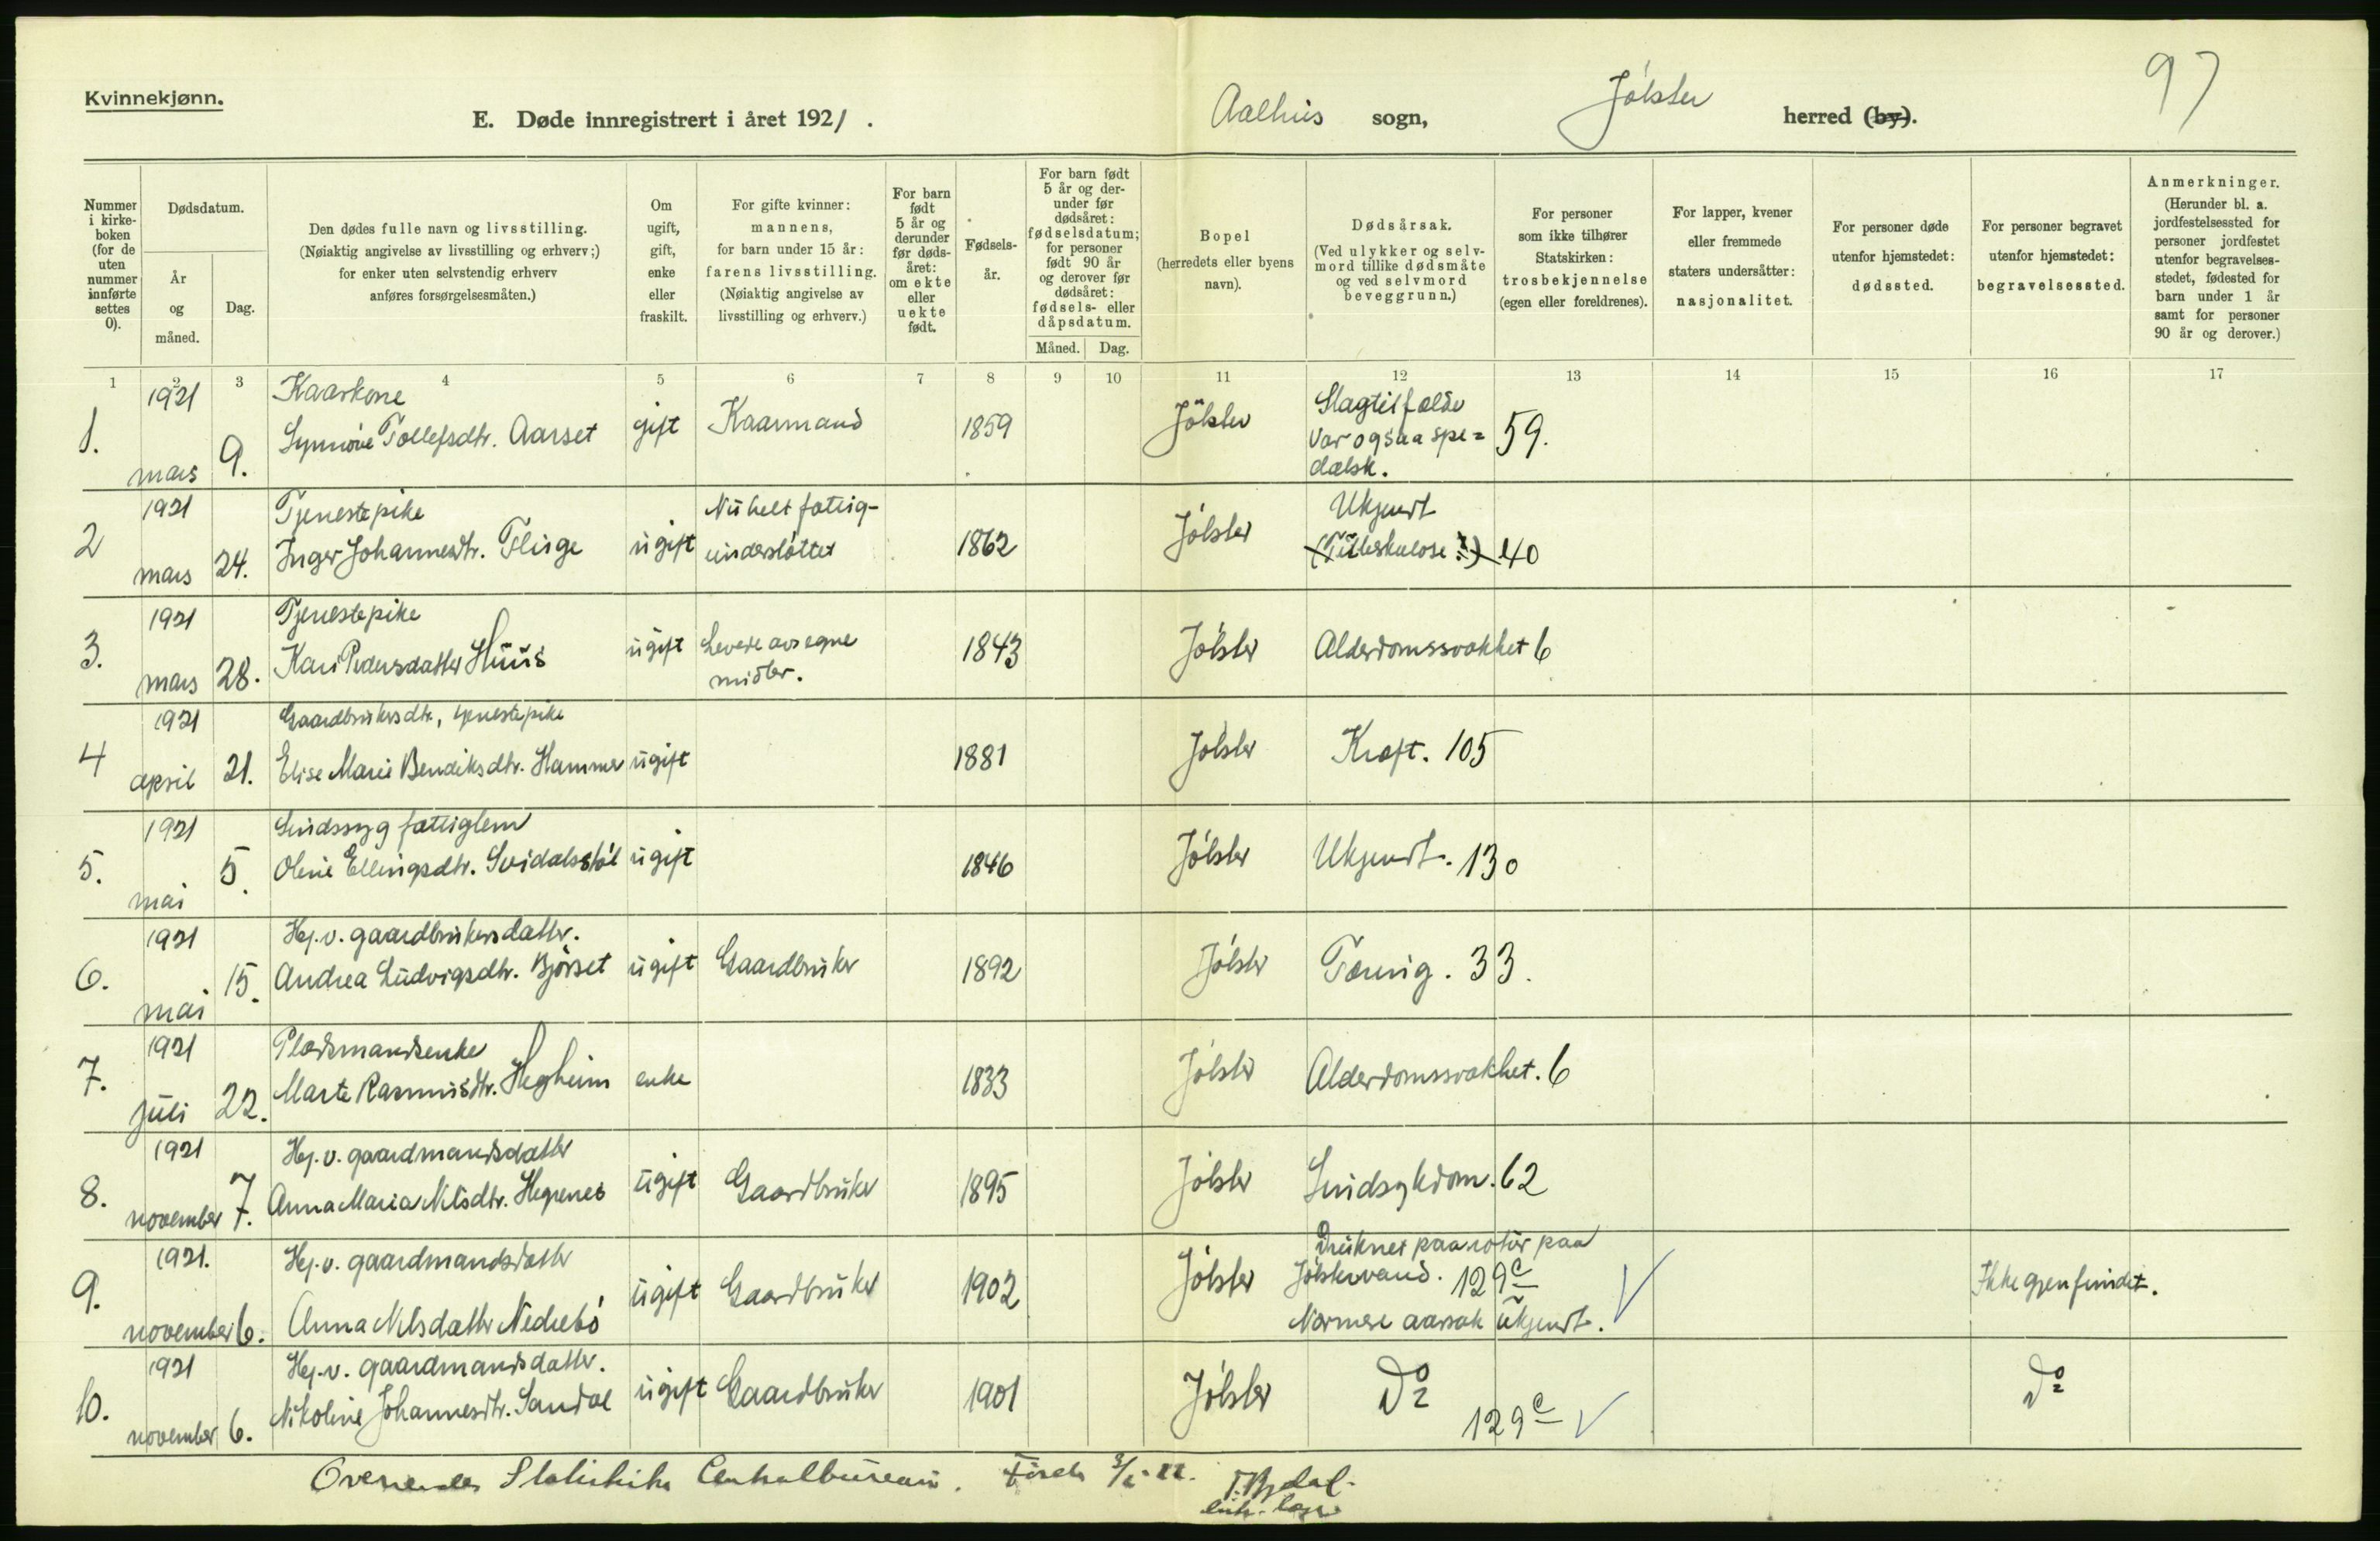 Kvinnekjønn.
97
E. Døde innregistrert i året 1921.
Aalhus sogn, Jølster herred (by).
Nummer i kirkeboken (for de uten nummer innførte settes 0).
Dødsdatum.
År og måned.
Dag.
Den dødes fulle navn og livsstilling.
(Nøiaktig angivelse av livsstilling og erhverv;)
for enker uten selvstendig erhverv
anføres forsørgelsesmåten.)
Om ugift, gift, enke eller fraskilt.
For gifte kvinner: mannens, for barn under 15 år: farens livsstilling. (Nøiaktig angivelse av livsstilling og erhverv.)
For barn født 5 år og derunder før dødsåret: om ekte eller uekte født.
Fødselsår.
For barn født 5 år og derunder før dødsåret: fødselsdatum; for personer født 90 år og derover før dødsåret: fødsels- eller dåpsdatum.
Måned. Dag.
Bopel (herredets eller byens navn).
Dødsårsak.
(Ved ulykker og selvmord tillike dødsmåte og ved selvmord beveggrunn.)
For personer som ikke tilhører Statskirken: trosbekjennelse (egen eller foreldrenes).
For lapper, kvener eller fremmede staters undersåtter: nasjonalitet.
For personer døde utenfor hjemstedet: dødssted.
For personer begravet utenfor hjemstedet: begravelsessted.
Anmerkninger.
(Herunder bl. a. jordfestelsessted for personer jordfestet utenfor begravelsesstedet, fødested for barn under 1 år samt for personer 90 år og derover.)
1 2 3 4 5 6 7 8 9 10 11 12 13 14 15 16 17
1. 1921 mars 9. Kaarkone
Synnøve Tollefsdtr. Aarset gift Kaarmand 1859 Jølster Slagtilfælde
Var ogsaa spe=
dalsk. 59.
2 1921 mars 24. Tjenestepike
Inger Johannesdtr. Flinge ugift Nu helt fattig-
understøttet 1862 Jølster Ukjendt
(Tuberkulose?) 40
3. 1921 mars 28. Tjenestepike
Kari Pedersdatter Huus ugift Levere av egne
midler. 1843 Jølster Alderdomssvakhet 6
4 1921 april 21. Gaardbrukersdtr., tjenestepike
Elise Marie Bendiksdtr. Hammer ugift 1881 Jølster Kræft. 105
5. 1921 mai 5. Sindssyg fattiglem
Oline Ellingsdtr. Svidalsstøl ugift 1846 Jølster Ukjendt. 130
6. 1921 mai 15. Hj. v. gaardbrukersdatter.
Andrea Ludvigsdtr. Bjørset ugift Gaardbruker 1892 Jølster Tæring. 33.
7. 1921 juli 22. Pladsmandsenke
Marte Rasmusdtr. Hegheim enke 1833 Jølster Alderdomssvakhet. 6
8. 1921 november 7. Hj. v. gaardmandsdatter
Anna Maria Nilsdtr. Hegrenes ugift Gaardbruker 1895 Jølster Sindsykdom. 62
9. 1921. november 6. Hj. v. gaardmandsdatter
Anna Nilsdatter Nedrebø ugift Gaardbruker 1902 Jølster Druknet paa rotur paa
Jølstervand. 129c
Nærmere aarsak ukjendt. Ikke gjenfundet.
10. 1921 november 6. Hj. v. gaardmandsdatter.
Nikoline Johannesdtr. Sandal ugift Gaardbruker 1901 Jølster Do 129c Do
Oversendes Statistiske Centralbureau. Førde